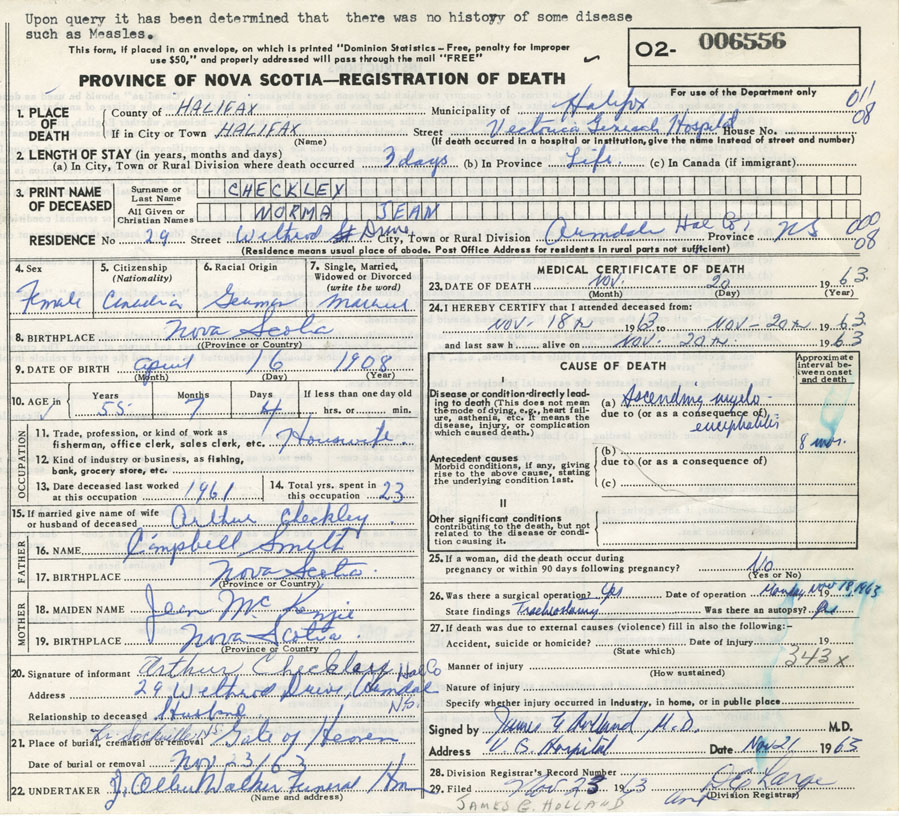 Upon query it has been determined that there was no history of some disease
such as Measles.
This form, if placed in an envelope, on which is printed "Dominion Statistics – Free, penalty for improper
use $50," and properly addressed will pass through the mail "FREE"
O2- 006556
PROVINCE OF NOVA SCOTIA—REGISTRATION OF DEATH
For use of the Department only
011
08
1. PLACE OF DEATH
County of HALIFAX Municipality of Halifax
If in City or Town HALIFAX Street Victoria General Hospital House No.
(Name) (If death occurred in a hospital or institution, give the name instead of street and number)
2. LENGTH OF STAY (in years, months and days)
(a) In City, Town or Rural Division where death occurred 3 days (b) In Province Life (c) In Canada (if immigrant)
3. PRINT NAME OF DECEASED
Surname or Last Name CHECKLEY
All Given or Christian Names NORMA JEAN
RESIDENCE No 29 Street Drive City, Town or Rural Division Armdale Hal Co, Province NS
000
08
(Residence means usual place of abode. Post Office Address for residents in rural parts not sufficient)
4. Sex
Female
5. Citizenship
(Nationality)
Canadian
6. Racial Origin
German
7. Single, Married, Widowed or Divorced
(write the word)
Married
8. BIRTHPLACE Nova Scotia
(Province or Country)
9. DATE OF BIRTH April 16 1908
(Month) (Day) (Year)
10. AGE in
Years Months Days If less than one day old
55 7 4 hrs. or min.
OCCUPATION
11. Trade, profession, or kind of work as
fisherman, office clerk, sales clerk, etc. Housewife
12. Kind of industry or business, as fishing,
bank, grocery store, etc.
13. Date deceased last worked at this occupation 1961
14. Total yrs. spent in this occupation 23
15. If married give name of wife or husband of deceased Arthur Checkley
FATHER
16. NAME Campbell Smith
17. BIRTHPLACE Nova Scotia
(Province or Country)
MOTHER
18. MAIDEN NAME Jean McKenzie
19. BIRTHPLACE Nova Scotia
(Province or Country
20. Signature of informant Arthur Checkley
Address 29 Drive, Armdale Hal Co N.S.
Relationship to deceased Husband
21. Place of burial, cremation or removal Gate of Heaven
Lr. Sackville N.S.
Date of burial or removal Nov 23/63
22. UNDERTAKER J. Allen Walker Funeral Hm
(Name and address)
MEDICAL CERTIFICATE OF DEATH
23. DATE OF DEATH Nov. 20 1963
(Month) (Day) (Year)
24. I HEREBY CERTIFY that I attended deceased from:
Nov - 18th 1963 to Nov - 20th 1963
and last saw h alive on Nov. 20th 1963
CAUSE OF DEATH
Approximate interval between onset and death
I
Disease or condition directly leading to death (This does not mean the mode of dying, e.g., heart failure, asthenia, etc. It means the disease, injury, or complication which caused death.)
(a) Ascending myelo-
due to (or as a consequence of)
encephalitis
8 mos.
Antecedent causes
Morbid conditions, if any, giving rise to the above cause, stating the underlying condition last.
(b)
due to (or as a consequence of)
(c)
II
Other significant conditions
contributing to the death, but not related to the disease or condition causing it.
25. If a woman, did the death occur during
pregnancy or within 90 days following pregnancy? No
(Yes or No)
26. Was there a surgical operation? Yes Date of operation Monday Nov 18, 1963 19
State findings Tracheostomy Was there an autopsy? Yes
27. If death was due to external causes (violence) fill in also the following:-
Accident, suicide or homicide? Date of injury 19
(State which)
Manner of injury 343x
(How sustained)
Nature of injury
Specify whether injury occurred in industry, in home, or in public place
Signed by James G Holland, M.D. M.D.
Address V. G. Hospital Date Nov 21 1963
28. Division Registrar's Record Number
29. Filed Nov 23 1963
(Division Registrar)
JAMES G. HOLLAND